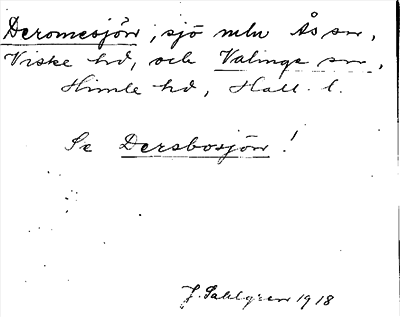 Deromesjön, sjö mln Ås sn,
Viske hd, och Valinge sn,
Himle hd, Hall. l.
Se Dersbosjön!
J. Sahlgren 1918